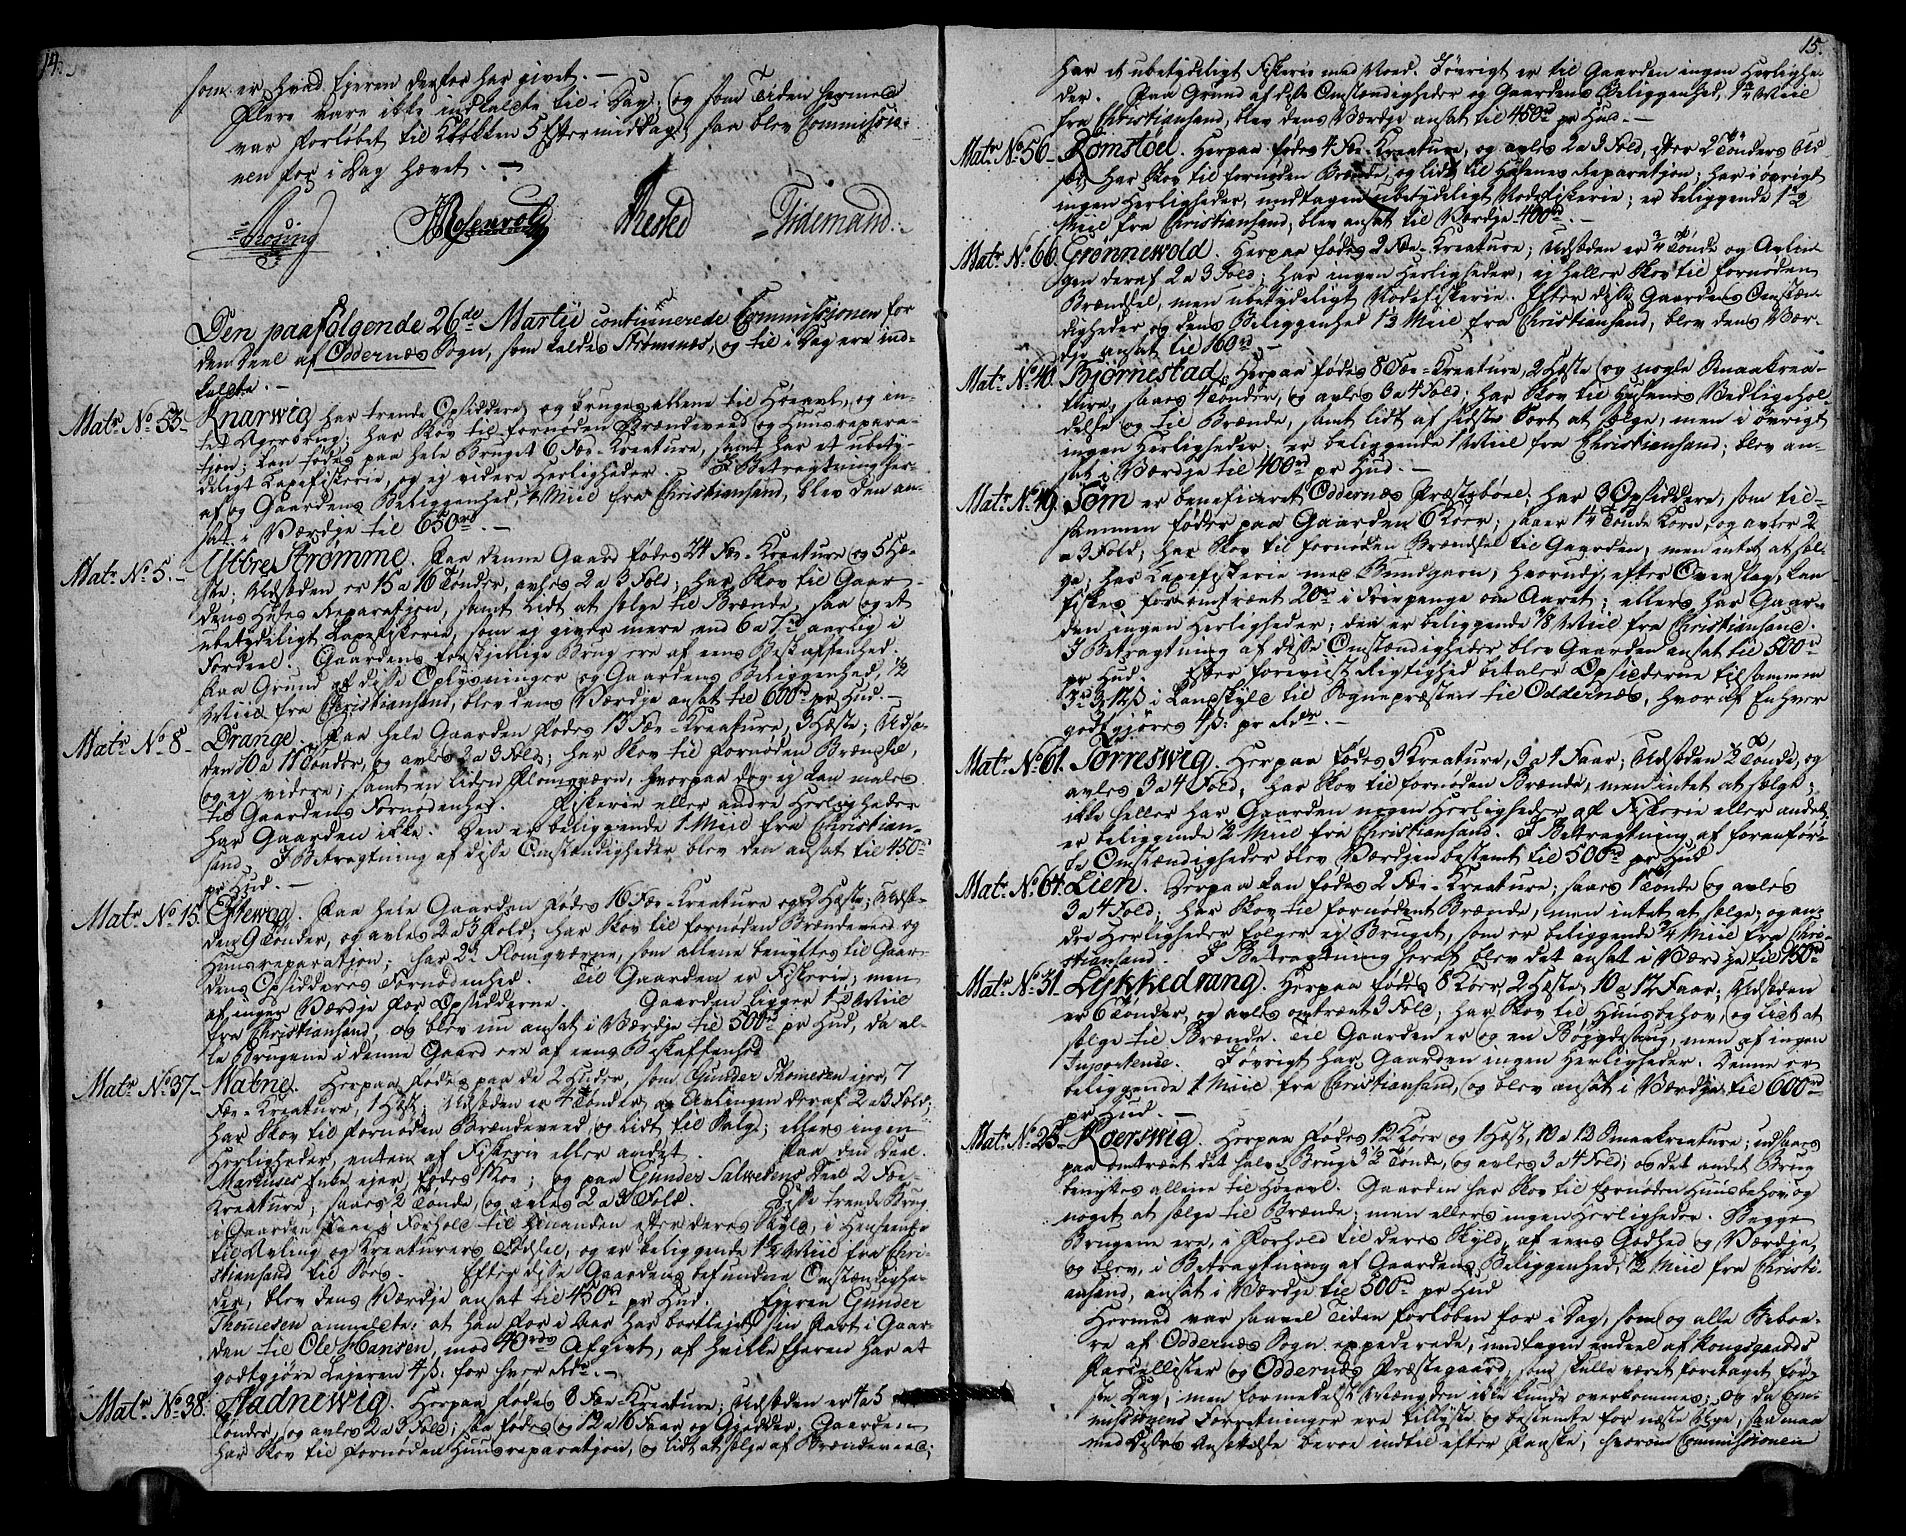 14.
som er hvad Ejeren derfor har givet. —
Flere vare ikke indkaldte til i Dag, og som Tiden hermed
var forløbet til Klokken 5 Eftermiddag, saa blev Commissio-
nen for i Dag hævet. —
Rosenvold Tidemand.
Den paafølgende 26de Martii continuerede Commissionen for
den Deel af Oddernæs Sogn, som kaldes Strømenæs, og til i Dag ere ind-
kaldte. —
Matr. No. 53. Knarwig har trende Opsiddere, og bruges allene til Høeavl, og in-
tet Agerbrug; har Skov til fornøden Brændeveed og Huusrepara-
tion; kan fødes paa hele Bruget 6 Fæe-Kreature, samt har et ubety-
deligt Laxefiskerie, og ej videre Herligheder. I Betragtning her-
af og Gaardens Beliggenhed, ¼ Miil fra Christiansand, blev den an-
sat i Værdje til 650rd. —
Matr. No. 5. Ytbre Strømme. Paa denne Gaard fødes 24 Fæe-Kreature og 5 Hæ-
ste; Udsæden er 15 a 16 Tønder, avles 2 a 3 Fold; har Skov til Gaar-
dens Huses Reparation, samt lidt at sælge til Brænde, saa og et
ubetydeligt Laxefiskerie, som ej giver mere end 6 a 7rd aarlig i
Fordeel. Gaardens forskjellige Brug ere af eens Beskaffenhed.
Paa Grund af disse Oplysninger og Gaardens Beliggenhed, ½
Miil fra Christiansand, blev dens Værdje ansat til 600rd pr Hud. —
Matr. No. 8. Drange. Paa hele Gaarden fødes 13 Fæe-Kreature, 3 Hæste; Udsæ-
den 10 a 11 Tønder, og avles 2 a 3 Fold; har Skov til fornøden Brændsel,
og ej videre; samt en liden Flomqværn, hvorpaa dog ej kan males
til Gaardens Fornødenhed. Fiskerie eller andre Herligheder
har Gaarden ikke. Den er beliggende 1 Miil fra Christian-
sand. I Betragtning af disse Omstændigheder blev den ansat til 450rd
pr Hud. —
Matr. No. 15. Eftewaag. Paa hele Gaarden fødes 16 Fæe-Kreature og 2 Hæste; Udsæ-
den 9 Tønder, og avles 2 a 3 Fold; har Skov til fornøden Brændeveed og
Huusreparation; har 2de Flomqværne, som allene benyttes til Gaar-
dens Opsidderes Fornødenhed. Til Gaarden er Fiskerie; men
af ingen Værdje for Opsidderne. Gaarden ligger 1 Miil
fra Christiansand, og blev nu ansat i Værdje til 500rd pr Hud, da al-
le Brugene i denne Gaard ere af eens Beskaffenhed
Matr. No. 37. Watne. Herpaa fødes paa de 2 Huder, som Gunder Thomesen ejer, 7
Fæe-Kreature, 1 Hæst; Udsæden er 4 Tønder og Avlingen deraf 2 a 3 Fold;
har Skov til fornøden Brændeveed, og lidt til Salg; ellers ingen
Herligheder, enten af Fiskerie eller andet. Paa den Deel
Marcuses Enke ejer, fødes 1 Koe; og paa Gunder Salvesens Deel 2 Fæe-
Kreature, saaes 2 Tønde, og avles 2 a 3 Fold. Disse trende Brug
i Gaarden staae i Forhold til hinanden efter deres Skyld, i Henseende
til Avling og Kreaturers Fødsel, og er beliggende 1½ Miil fra Chri-
stiansand til Søes. Efter disse Gaardens befundne Omstændighe-
der, blev dens Værdje ansat til 450rd pr Hud. Ejeren Gunder
Thomesen anmeldte, at han for i Aar har bortlejet sin Part i Gaar-
den til Ole Hansen, mod 40rds Afgivt, af hvilke Ejeren har at
godtgjøre Lejeren 4ß. for hver Rdr. —
Matr. No. 38. Stadnewig. Herpaa fødes 8 Fæe-Kreature; Udsæden er 4 a 5
Tønder, og avles 2 a 3 Fold; saa fødes og 12 a 16 Faar og Gjedder. Gaarden
har Skov til fornøden Huusreparation, og lidt at sælge af Brændeveed;
15.
har et ubetydeligt Fiskerie med Noed. Iøvrigt er til Gaarden ingen Herlighe-
der. Paa Grund af disse Omstændigheder og Gaardens Beliggenhed, 1¼ Miil
fra Christiansand, blev dens Værdje ansat til 450rd pr Hud. —
Matr. No. 56. Romstøel. Herpaa fødes 4 Fæe-Kreature, og avles 2 a 3 Fold, efter 2 Tønders Ud-
sæd; har Skov til fornøden Brænde, og lidt til Husenes Reparation; har i øvrigt
ingen Herligheder, undtagen ubetydeligt Nodefiskerie; er beliggende 1½
Miil fra Christiansand, blev ansat til Værdje 400rd. —
Matr. No. 66. Grønnewold. Herpaa fødes 2 Fæe-Kreature; Udsæden er ¾ Tønde og Avlin-
gen deraf 2 a 3 Fold; har ingen Herligheder, ej heller Skov til fornøden
Brændsel, men ubetydeligt Nodefiskerie. Efter disse Gaardens Omstæn-
digheder og dens Beliggenhed 1½ Miil fra Christiansand, blev dens Vær-
dje ansat til 160rd. —
Matr. No. 40. Bjørnestad. Herpaa fødes 8 Fæe-Kreature, 2 Hæste og nogle Smaakrea-
ture, saaes 4 Tønder, og avles 3 a 4 Fold; har Skov til Husenes Vedligehol-
delse og til Brænde, samt lidt af sidste Sort at sælge, men i øvrigt
ingen Herligheder; er beliggende 1 Miil fra Christiansand; blev an-
sat i Værdje til 400rd pr Hud. —
Matr. No. 49. Søm er beneficeret Oddernæs Præstebole; har 3 Opsiddere, som til-
sammen føder paa Gaarden 6 Køer; saaer 1¼ Tønde Korn, og avler 2
a 3 Fold; har Skov til fornøden Brændsel til Gaarden, men intet at sæl-
ge; har Laxefiskerie med Bundgarn, hvorved, efter Overslag, kan
fiskes for omtrent 20rd i Forpenge om Aaret; ellers har Gaar-
den ingen Herligheder; den er beliggende ⅜ Miil fra Christiansand.
I Betragtning af disse Omstændigheder blev Gaarden ansat til 500rd
pr Hud. Efter foreviist Rigtighed betaler Opsidderne tilsammen
3rd 3 12ß i Landskyld til Sognepræsten til Oddernæs, hvoraf Enhver
godtgjøres 4ß. pr Rdr. —
Matr. No. 61. Torreswig. Herpaa fødes 3 Kreature, 3 a 4 Faar; Udsæden ½ Tønde, og
avles 3 a 4 Fold; har Skov til fornøden Brænde, men intet at sælge;
ikke heller har Gaarden nogen Herligheder af Fiskerie eller andet;
er beliggende ½ Miil fra Christiansand. I Betragtning af foranfør-
te Omstændigheder blev Værdjen bestemt til 500rd pr Hud
Matr. No. 64. Lien. Herpaa kan fødes 2 Fæe-Kreature; saaes 1 Tønde og avles
3 a 4 Fold; har Skov til fornødent Brænde, men intet at sælge; og an-
dre Herligheder følger ej Bruget, som er beliggende ¾ Miil fra Chri-
stiansand. I Betragtning heraf blev det ansat i Værdje til 450rd
Matr. No. 31. Lykkedrang. Herpaa fødes 8 Køer, 2 Hæste, 10 a 12 Faar; Udsæden
er 6 Tønder, og avles omtrent 3 Fold; har Skov til Huusbehov, og lidt at
sælge til Brænde. Til Gaarden er og en Bøygdesaug, men af ingen
Importence. Iøvrigt har Gaarden ingen Herligheder. Denne er
beliggende 1 Miil fra Christiansand, og blev ansat i Værdje til 600rd
pr Hud. —
Matr. No. 25. Koerswig. Herpaa fødes 12 Køer og 1 Hæst, 10 a 12 Smaakreature; udsaaes
paa omtrent det halve Brug 3½ Tønde, og avles 3 a 4 Fold; og det andet Brug
benyttes allene til Høeavl. Gaarden har Skov til fornøden Huusbehov og
noget at sælge til Brænde; men ellers ingen Herligheder. Begge
Brugene ere, i Forhold til deres Skyld, af eens Godhed og Værdje,
og blev, i Betragtning af Gaardens Beliggenhed, ½ Miil fra Christi-
ansand, ansat i Værdje til 500rd pr Hud
Hermed var saavel Tiden forløben for i Dag, som og alle Beboe-
re af Oddernæs Sogn expederede, undtagen endeel af Kongsgaards
Parcellister og Oddernæs Præstegaard, som skulle været foretaget før-
ste Dag, men formedelst Mængden ikke kunde overkommes; og da Com-
missionens Forretninger ere tillyste og bestemte for næste Uge, saa maa
med Disses Ansættelse beroe indtil efter Paaske, hvorom Commissionen